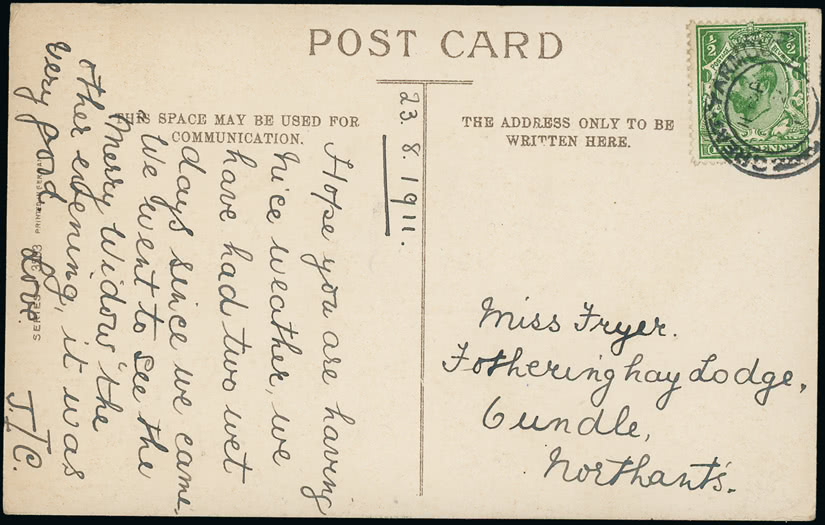 POST CARD
THIS SPACE MAY BE USED FOR
COMMUNICATION.
THE ADDRESS ONLY TO BE
WRITTEN HERE.
23.8.1911.
Hope you are having
nice weather, we
have had two wet
days since we came.
We went to see the
"Merry Widow" the
other evening, it was
very good. Love.
J.T.C.
Miss Fryer.
Fotheringhay Lodge,
Oundle,
Northants.
1/2
1/2
YARMOUTH
SERIES